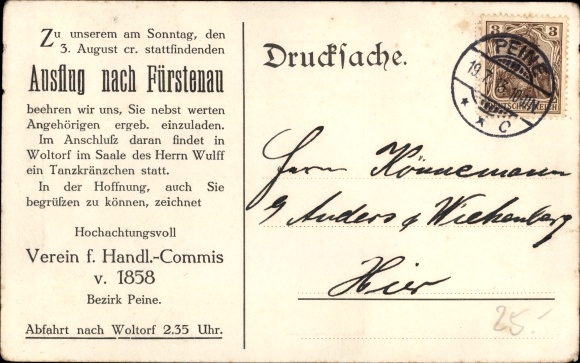 Zu unserem am Sonntag, den
3. August cr. stattfindenden
Ausflug nach Fürstenau
beehren wir uns, Sie nebst werten
Angehörigen ergeb. einzuladen.
Im Anschluß daran findet in
Woltorf im Saale des Herrn Wulff
ein Tanzkränzchen statt.
In der Hoffnung, auch Sie
begrüßen zu können, zeichnet
Hochachtungsvoll
Verein f. Handl.-Commis
v. 1858
Bezirk Peine.
Abfahrt nach Woltorf 2.35 Uhr.
Drucksache.
3 3
PEINE
19.7.
* * c
Herrn Könnemann
Anders & Wichenberg
Hier
25.-